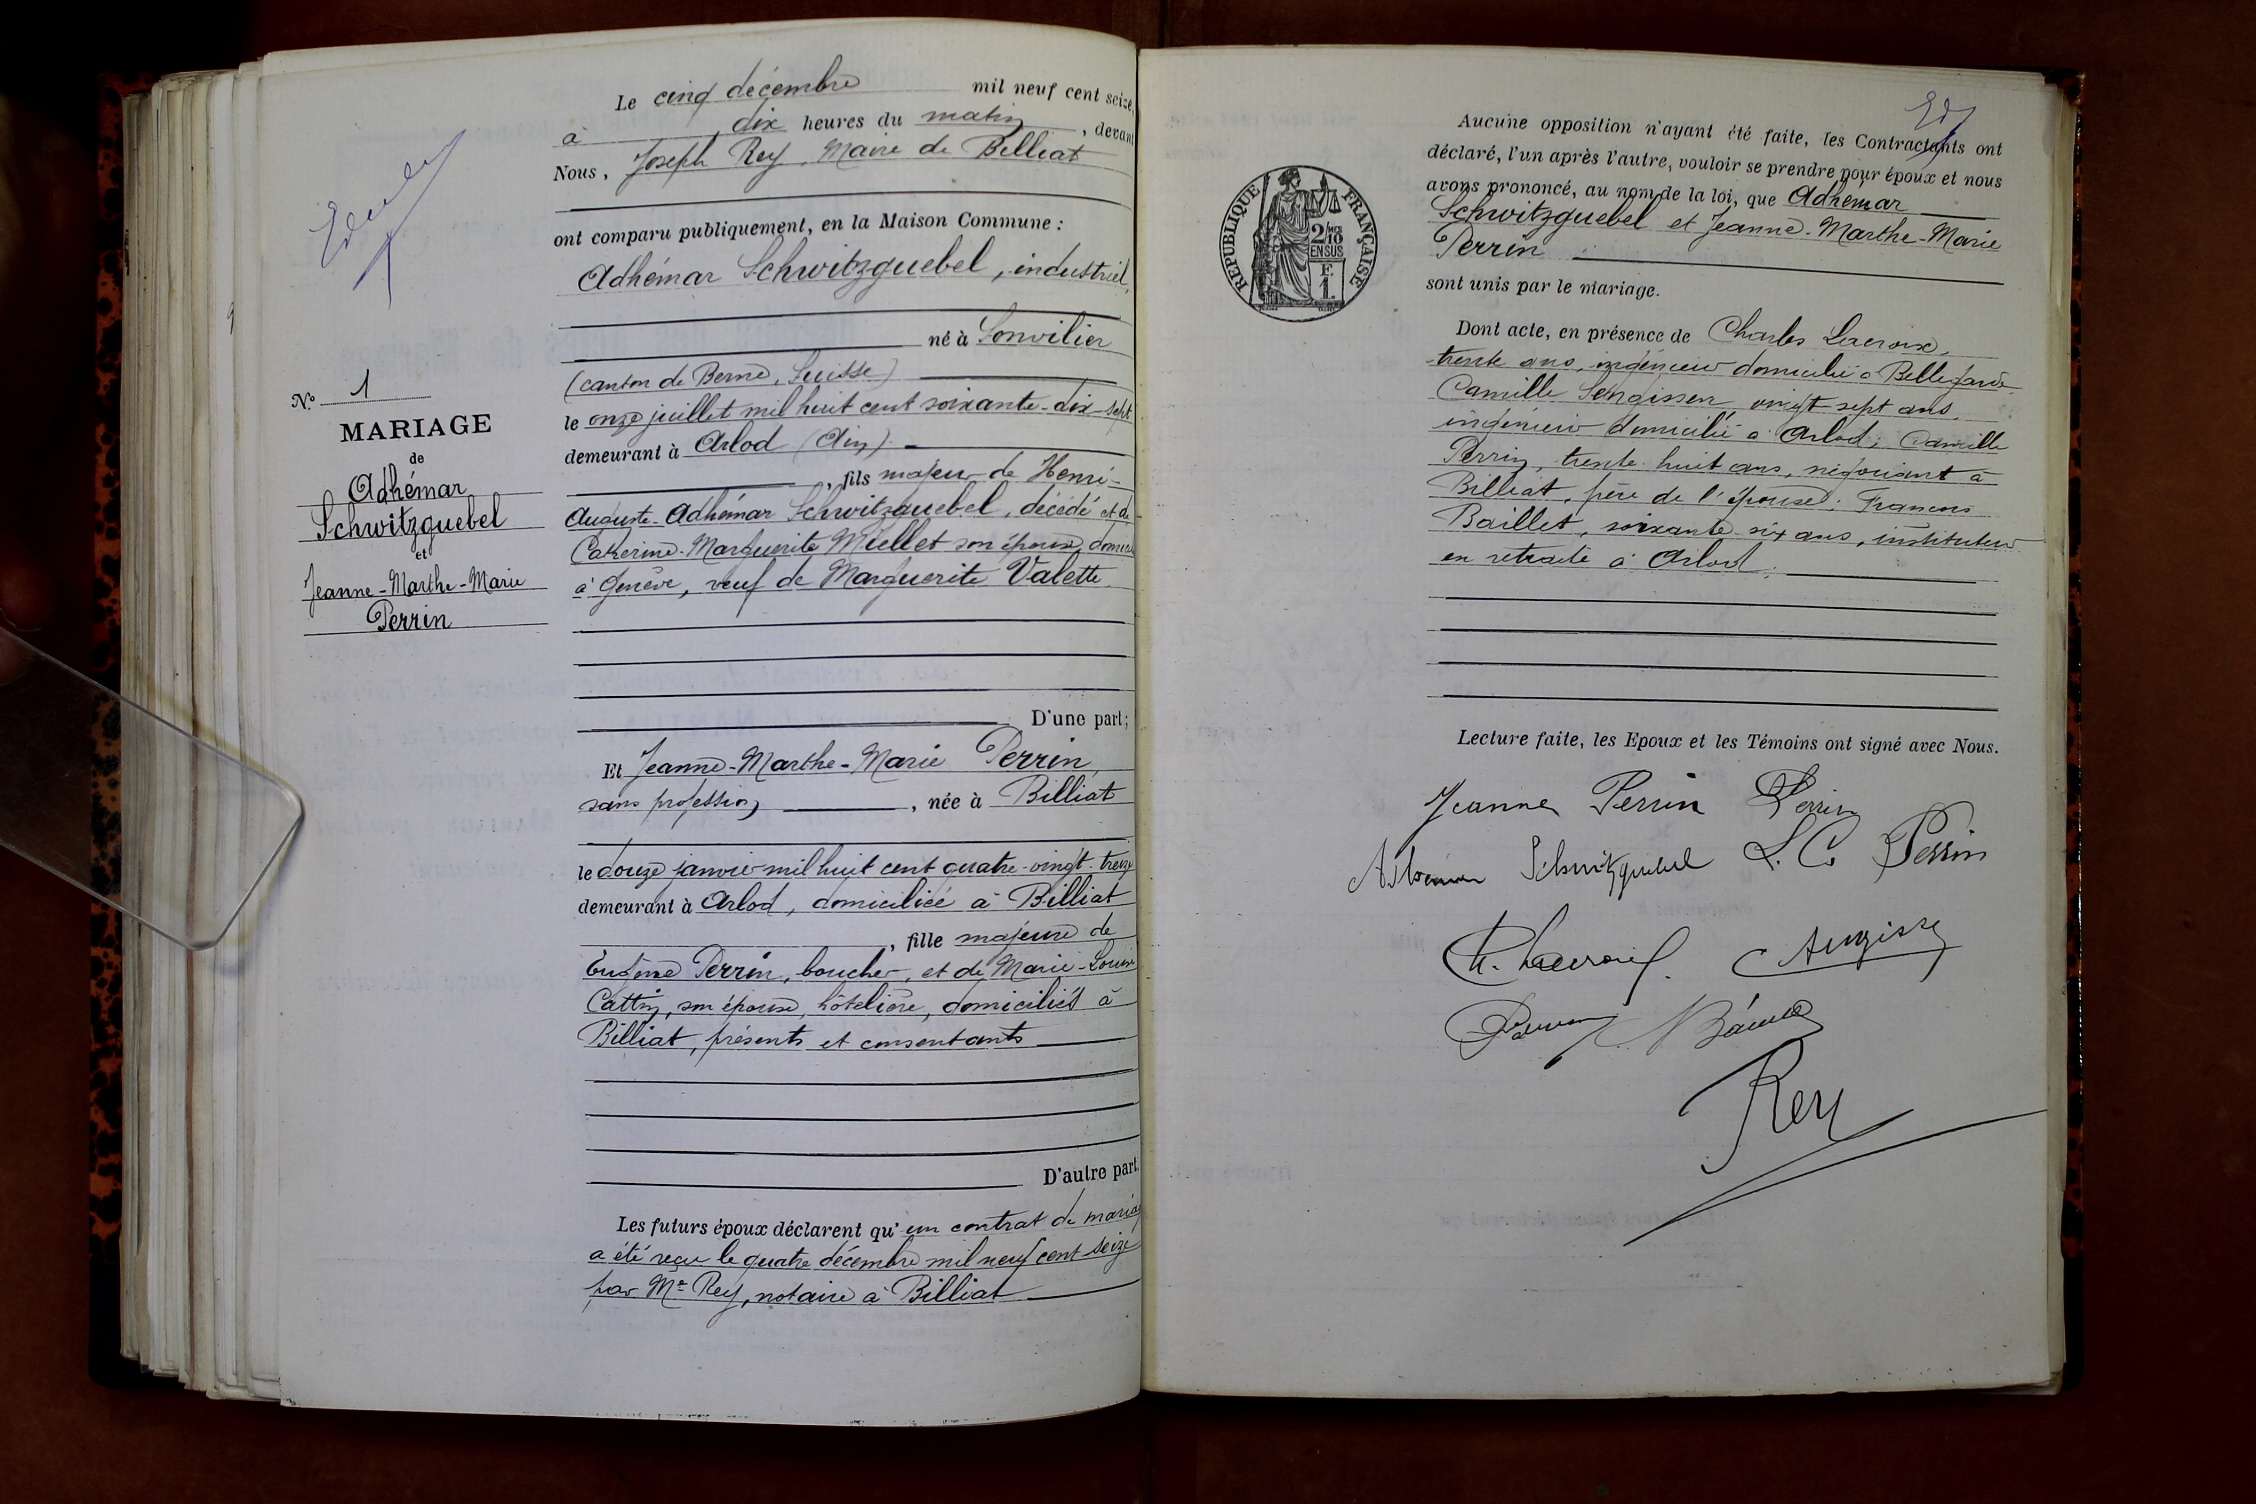 Le cinq décembre mil neuf cent seize,
à dix heures du matin, devant
Nous, Joseph Rey, Maire de Billiat
ont comparu publiquement, en la Maison Commune :
Adhémar Schwitzguebel, industriel,
né à Sonvilier
(canton de Berne, Suisse)
le onze juillet mil huit cent soixante-dix-sept
demeurant à Arlod (Ain).
, fils majeur de Henri-
Auguste-Adhémar Schwitzguebel, décédé et de
Catherine-Marguerite Miellet son épouse,
à Genève, veuf de Marguerite Valette
D'une part;
Et Jeanne-Marthe-Marie Perrin,
sans profession, née à Billiat
le douze janvier mil huit cent quatre-vingt-treize
demeurant à Arlod, domiciliée à Billiat
, fille majeure de
Eugène Perrin, boucher, et de Marie-Louise
Cattin, son épouse, hôtelière, domiciliés à
Billiat, présents et consentants
D'autre part.
Les futurs époux déclarent qu'un contrat de mariage
a été reçu le quatre décembre mil neuf cent seize
par Me Rey, notaire à Billiat
N.o 1
MARIAGE
de
Adhémar
Schwitzguebel
et
Jeanne-Marthe-Marie
Perrin
Aucune opposition n'ayant été faite, les Contractants ont
déclaré, l'un après l'autre, vouloir se prendre pour époux et nous
avons prononcé, au nom de la loi, que Adhémar
Schwitzguebel et Jeanne-Marthe-Marie
Perrin
sont unis par le mariage.
RÉPUBLIQUE FRANÇAISE
2/10
EN SUS
F.
1.
Dont acte, en présence de Charles Lacroix,
trente ans, ingénieur domicilié à Bellegarde
Camille vingt sept ans,
ingénieur domicilié à Arlod; Camille
Perrin, trente-huit ans, négociant à
Billiat, frère de l'épouse; François
Baillet, soixante-six ans, instituteur
en retraite à Arlod;
Lecture faite, les Epoux et les Témoins ont signé avec Nous.
Jeanne Perrin Perrin
Schwitzguebel L. C. Perrin
Ch. Lacroix
Rey